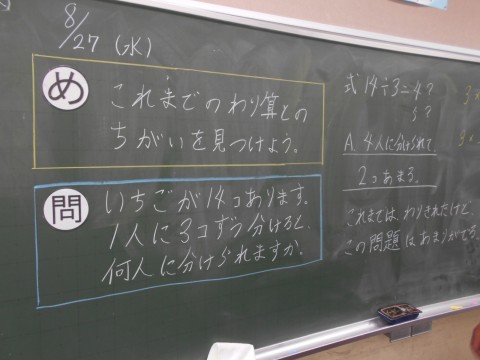 8/27 (水)
め
これまでのわり算との
ちがいを見つけよう。
問
いちごが14コあります。
1人に3コずつ分けると、
何人に分けられますか。
式 14÷3=4?
5?
A. 4人に分けられて、
2コあまる。
これまでは、わりきれたけど、
この問題はあまりがでる。
3×
3×